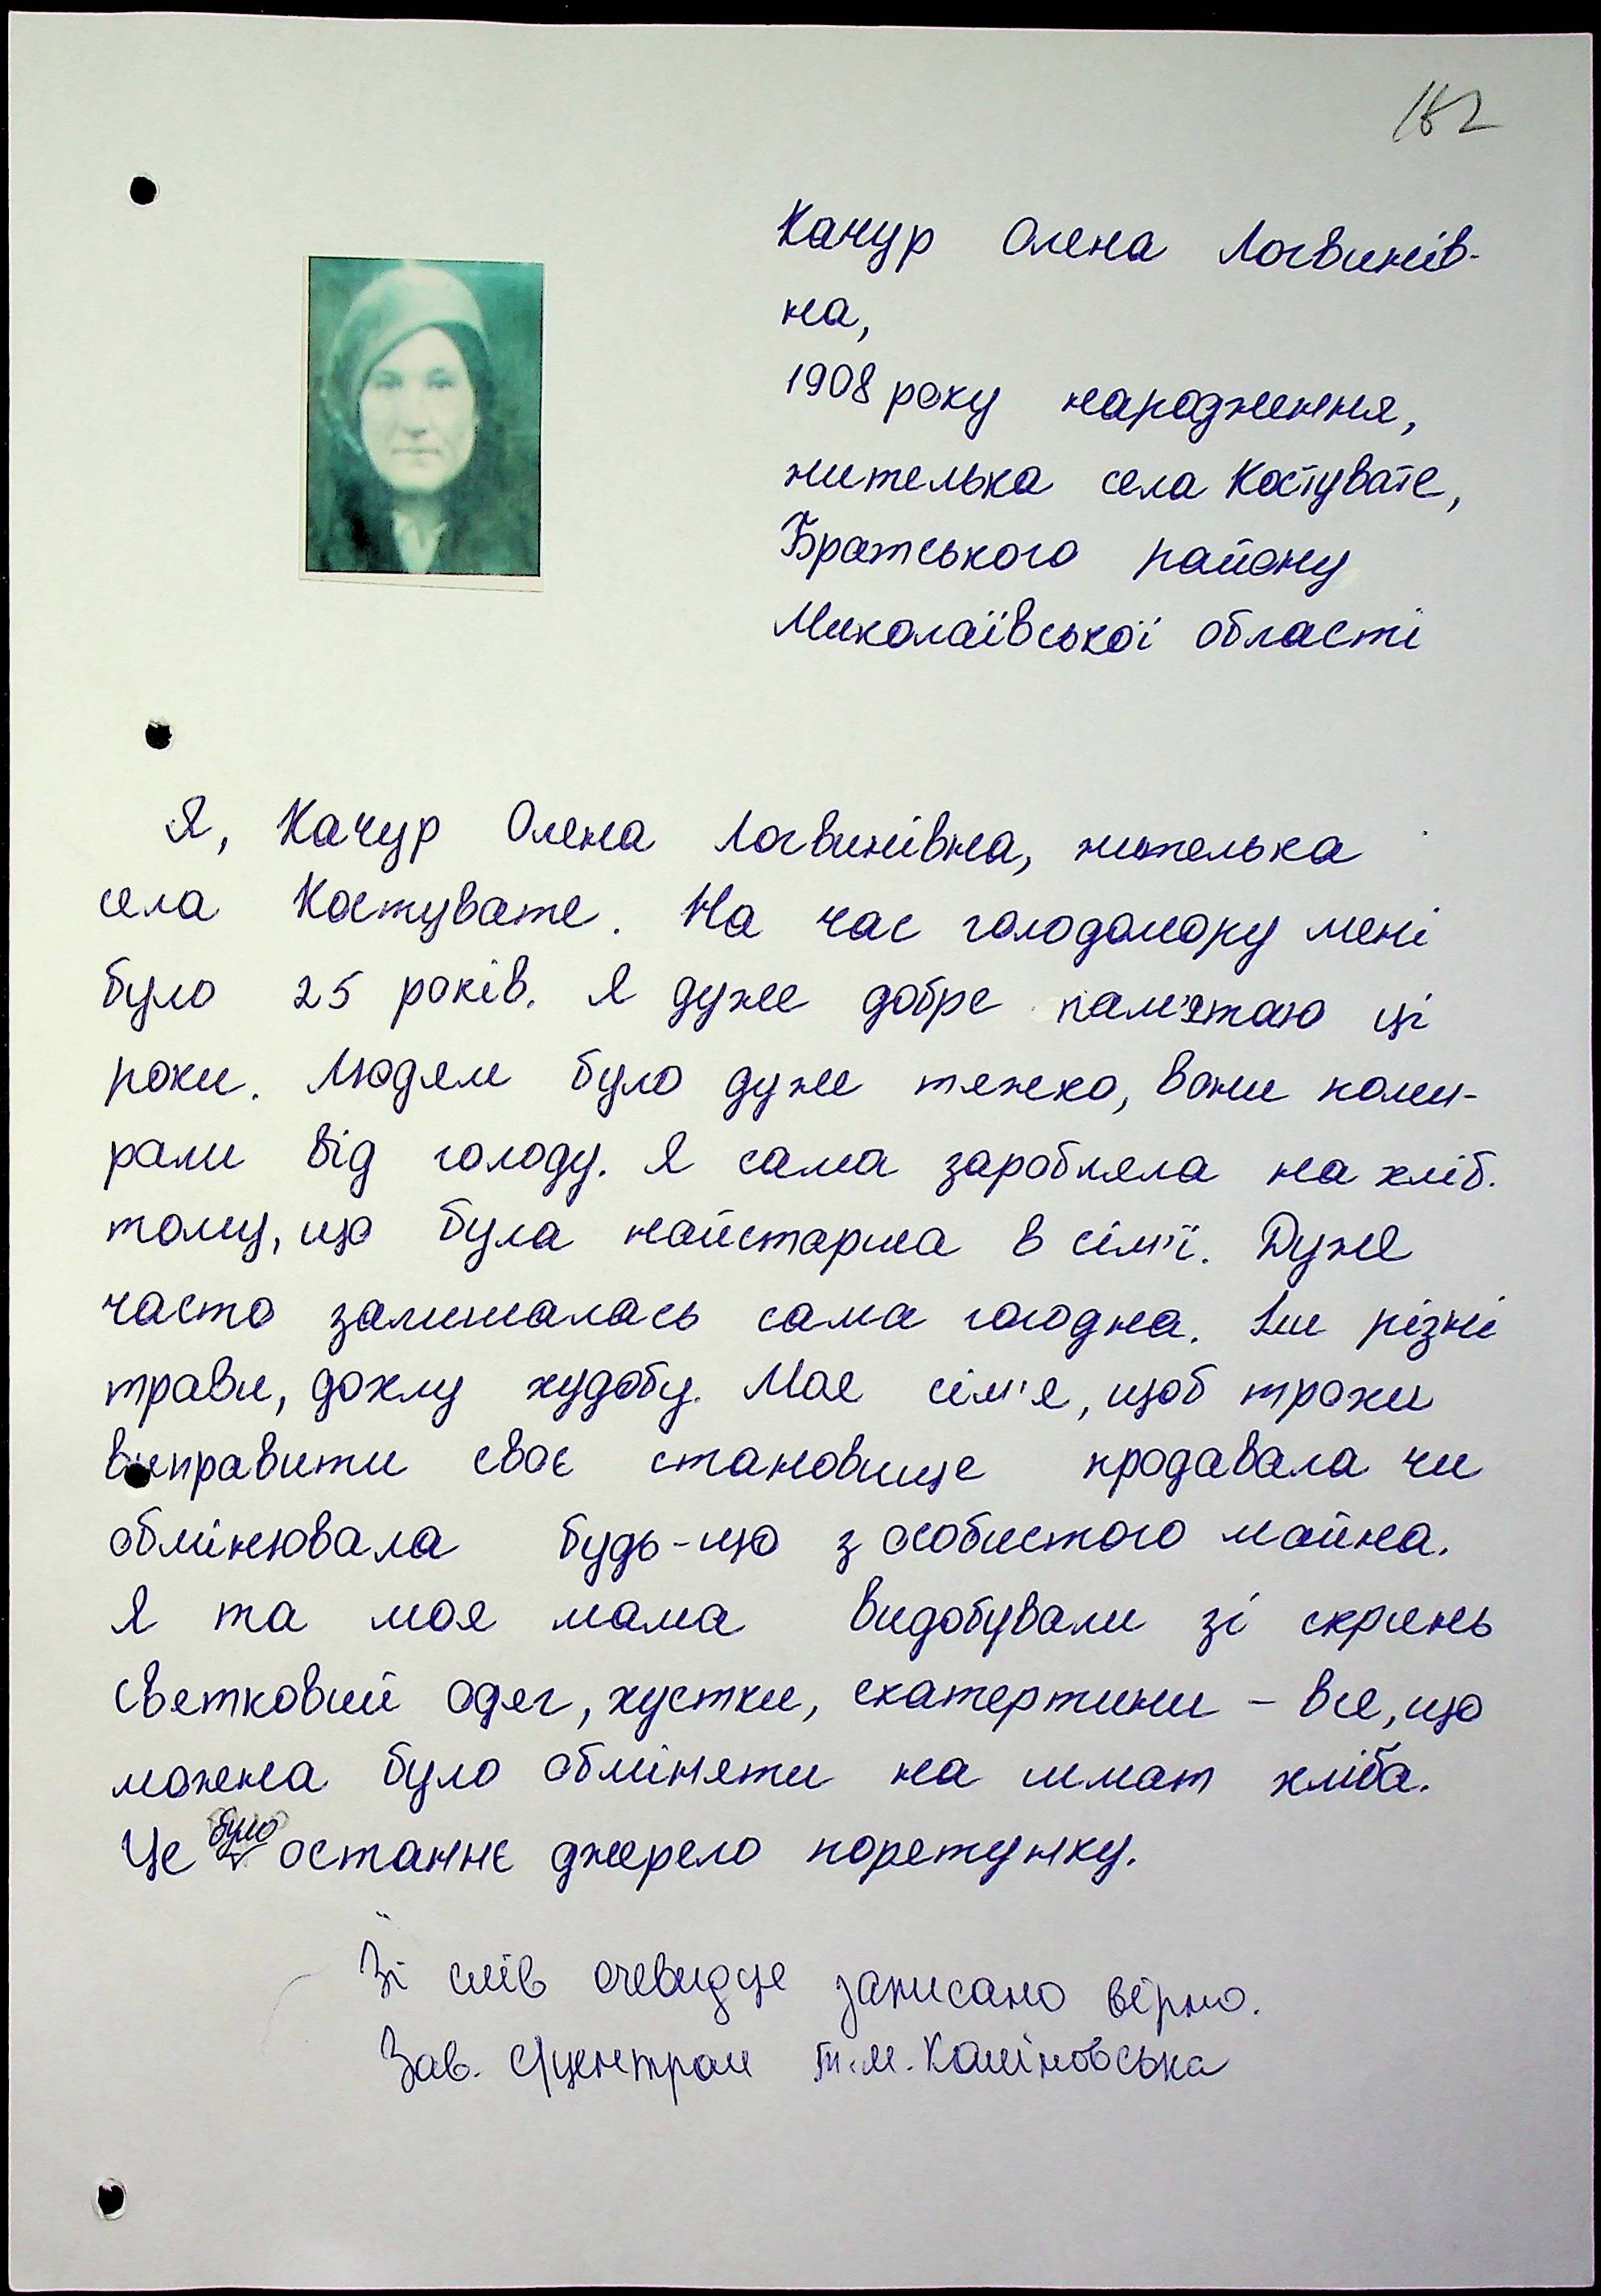 182
Качур Олена Логвинів-
на,
1908 року народження,
жителька села Костувате,
Братського району
Миколаївської області
Я, Качур Олена Логвинівна, жителька
села Костувате. На час голодомору мені
було 25 років. Я дуже добре пам'ятаю ці
роки. Людям було дуже тяжко, вони поми-
рали від голоду. Я сама заробляла на хліб.
тому, що була найстарша в сім'ї. Дуже
часто залишалась сама голодна. Їли різні
трави, дохлу худобу. Моя сім'я, щоб трохи
виправити своє становище продавала чи
обмінювала будь-що з особистого майна.
Я та моя мама видобували зі скринь
святковий одяг, хустки, скатертини - все, що
можна було обміняти на шмат хліба.
Це було останнє джерело порятунку.
Зі слів очевидця записано вірно.
Зав. с/центром Т.М. Каліновська